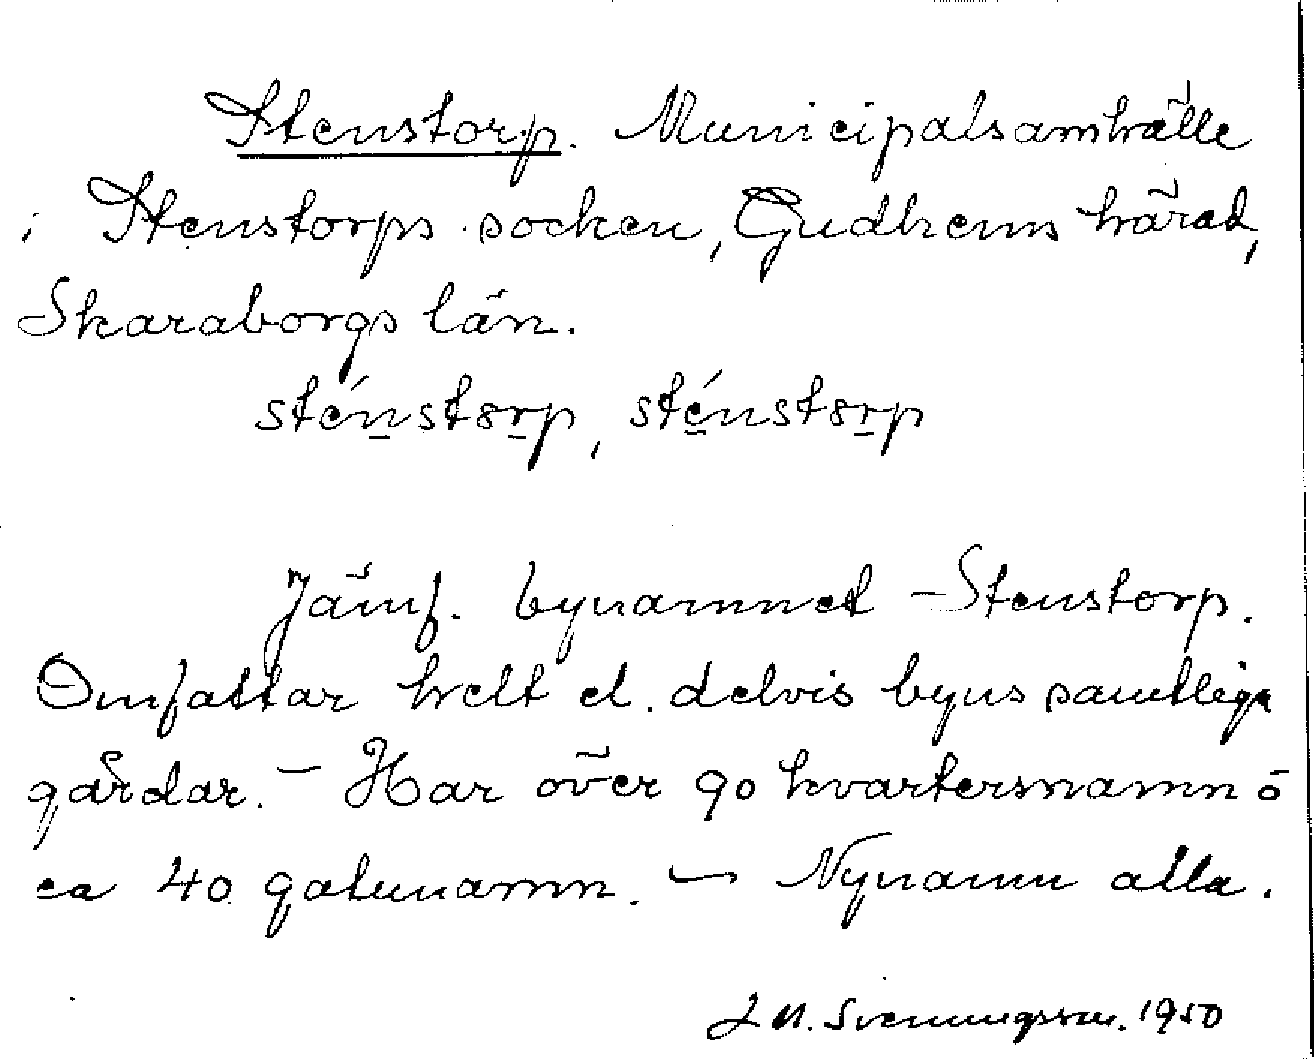 Stenstorp. Municipalsamhälle
i Stenstorps socken, Gudhems härad,
Skaraborgs län.
sténstorp, sténstorp
Jämf. bynamnet Stenstorp.
Omfattar helt el. delvis byns samtliga
gårdar. - Har över 90 kvartersnamn o
ca 40 gatunamn. - Nynamn alla.
J. N. Svenungsson. 1950